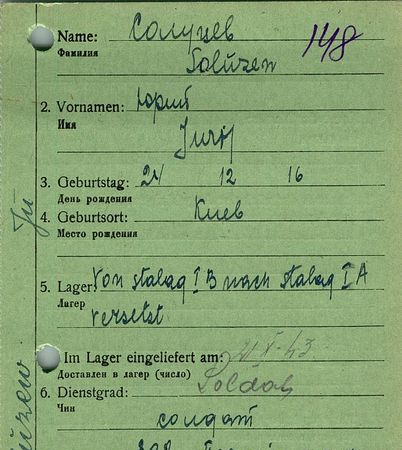 Name: Солуцев 148
Фамилия
Solüzew
2. Vornamen: Юрий
Имя
Jurij
3. Geburtstag: 24 12 16
День рождения
4. Geburtsort: Киев
Место рождения
5. Lager: Von stalag I B nach stalag I A
Лагер
versetzt
Im Lager eingeliefert am: X-43
Доставлен в лагер (число)
6. Dienstgrad: Soldat
Чин
солдат